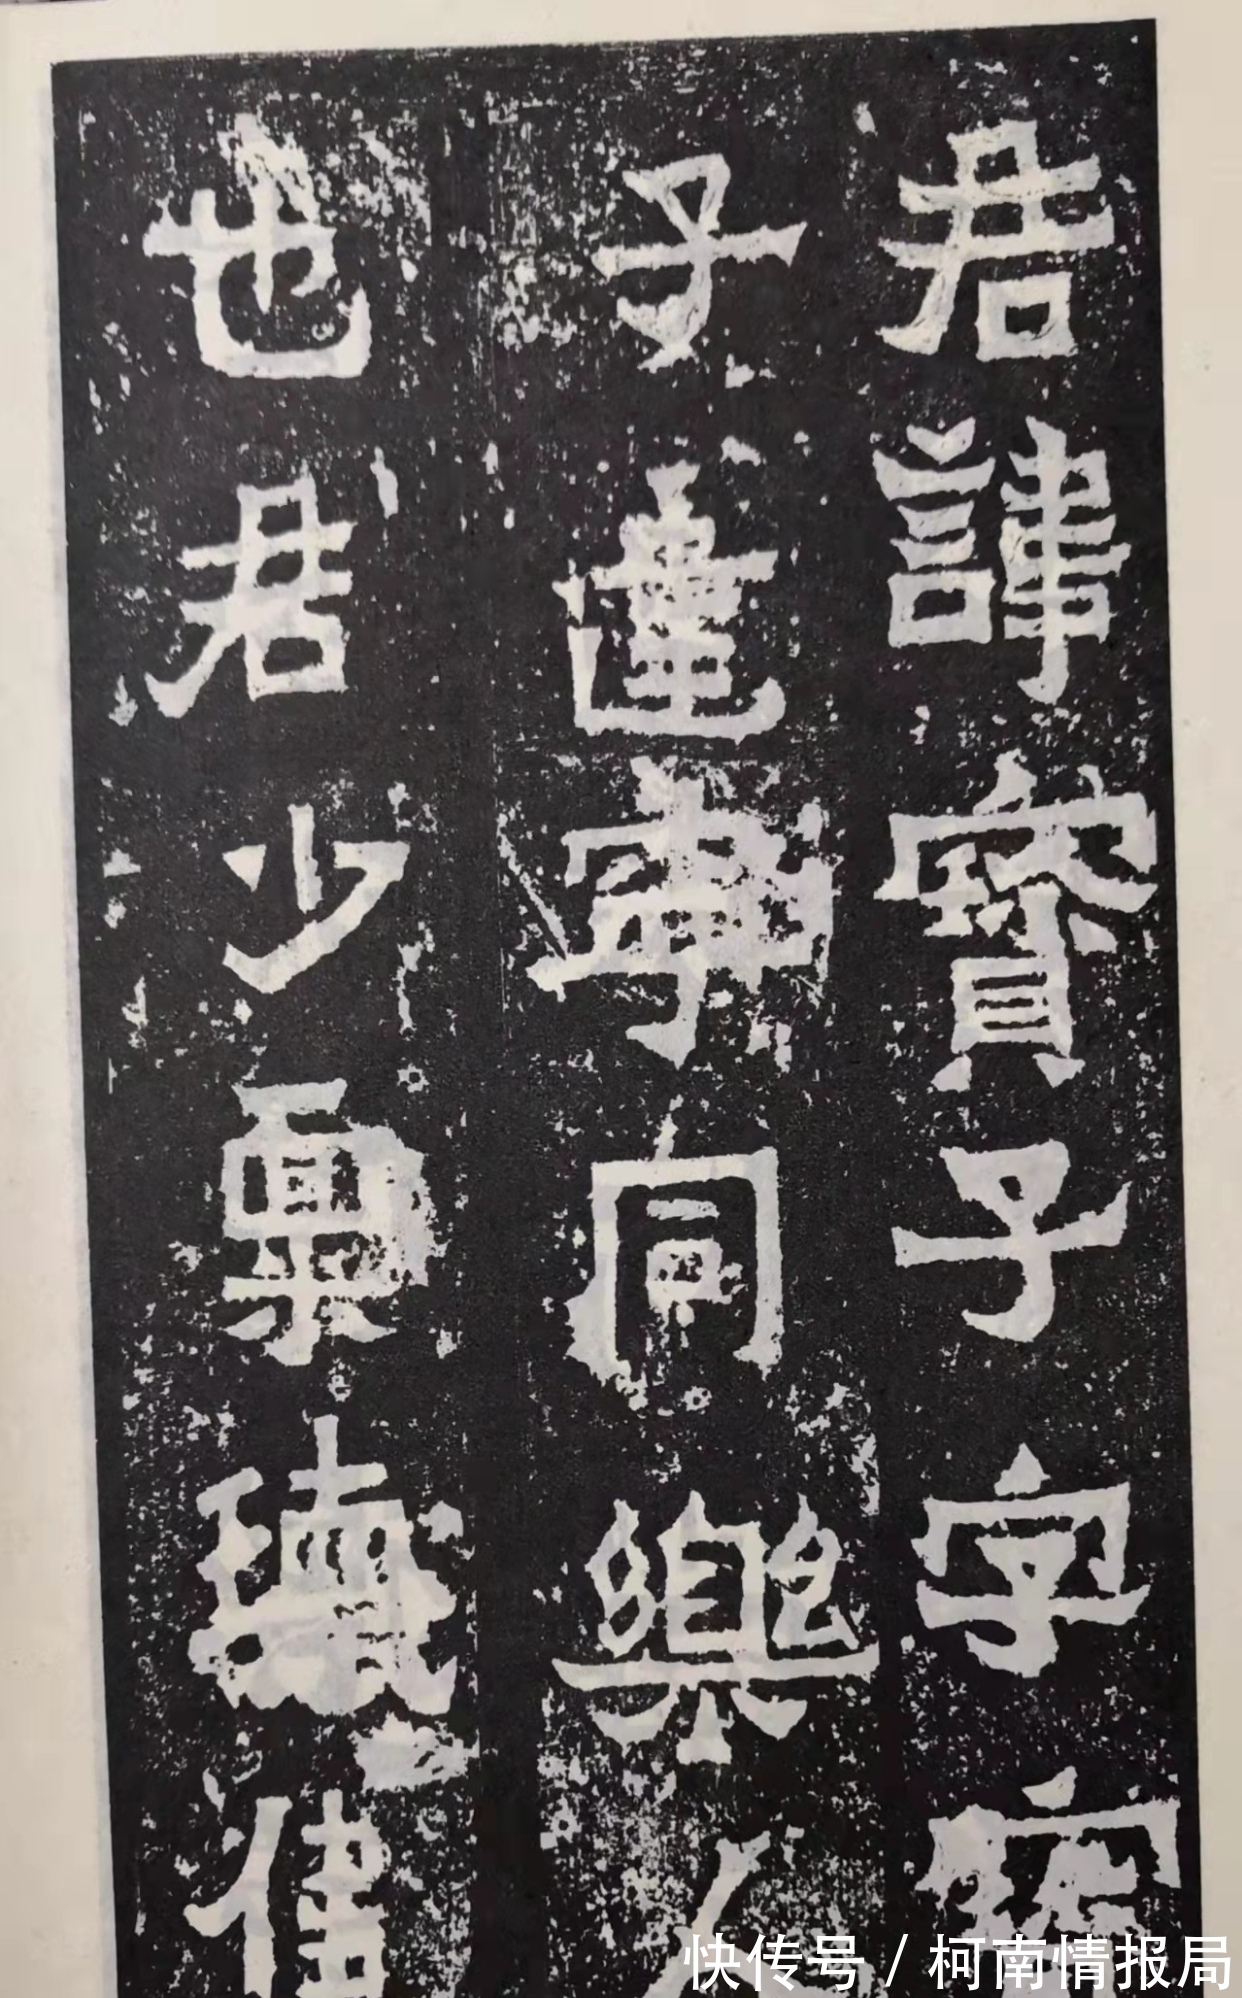 君諱寶子字寶
子建寧同樂人
也君少稟瓌偉
快传号 / 柯南情报局